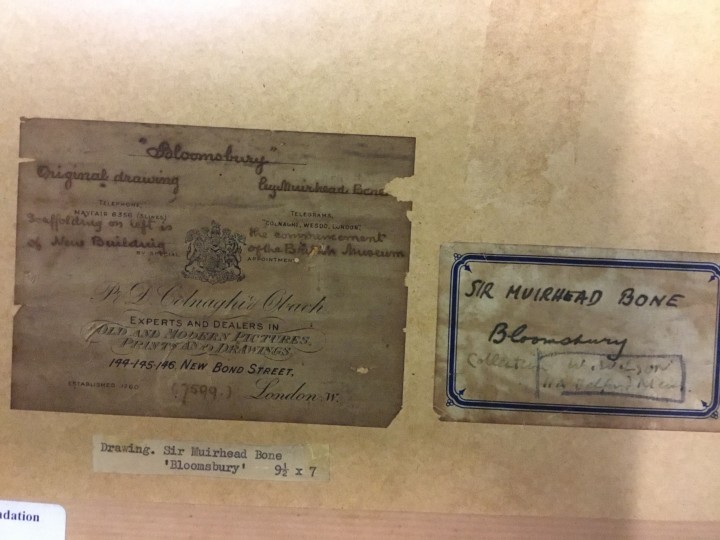 "Bloomsbury"
Original drawing by Muirhead Bone
TELEPHONE
MAYFAIR
TELEGRAMS,
"COLNAGHI, WESDO, LONDON."
Scaffolding on left is the commencement
of New Building of the British Museum
BY SPECIAL APPOINTMENT
P. & D. Colnaghi & Obach
EXPERTS AND DEALERS IN
OLD AND MODERN PICTURES,
PRINTS AND DRAWINGS,
144-145-146, NEW BOND STREET,
ESTABLISHED 1760
(7599.) London W.
SIR MUIRHEAD BONE
Bloomsbury
Collection
Drawing. Sir Muirhead Bone
'Bloomsbury' 9½ x 7
ndation